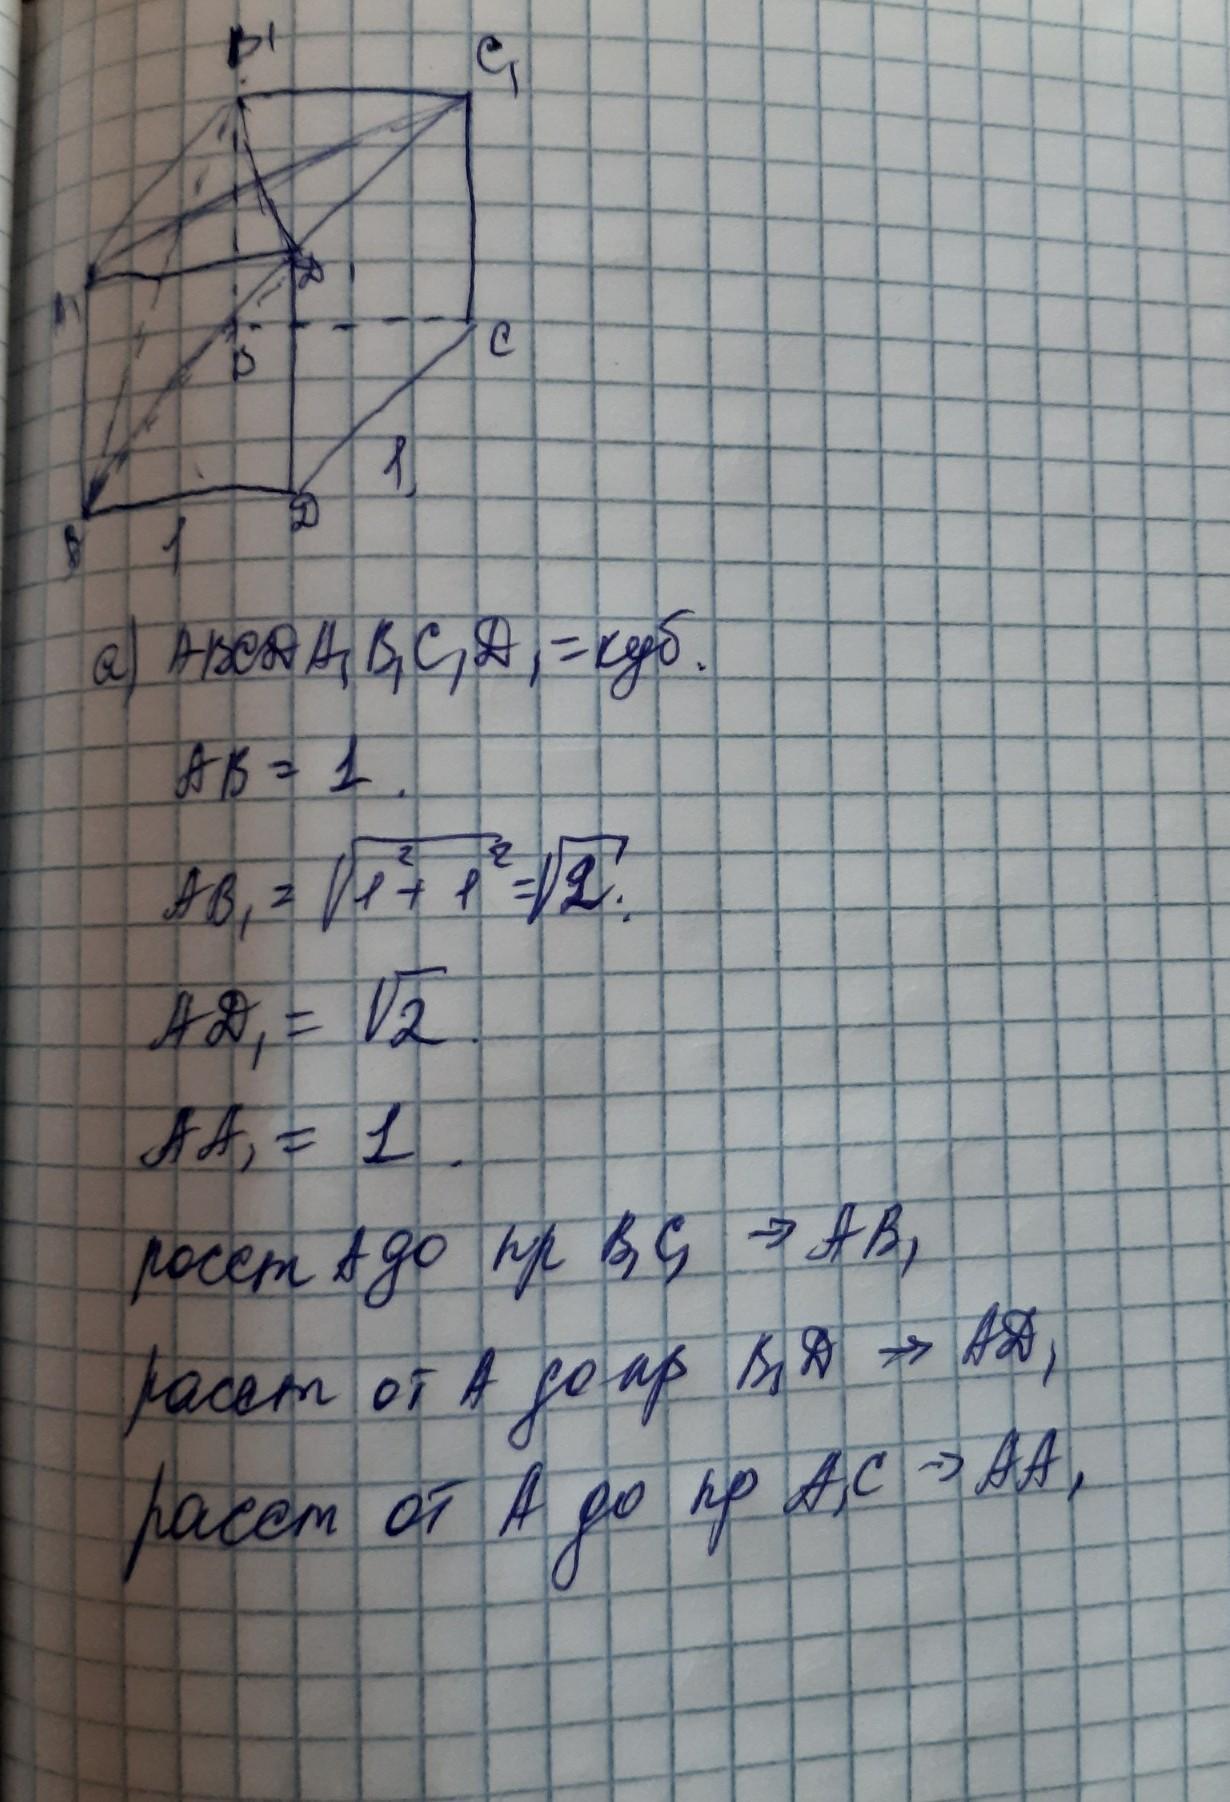 B1
C1
A1
D1
B
C
1
B
D
1
a) ABCDA1B1C1D1 = куб.
AB = 1.
AB1 = √1²+1² = √2.
AD1 = √2.
AA1 = 1.
росст A до пр B1C1 → AB1
расст от A до пр B1D → AD1
расст от A до пр A1C → AA1